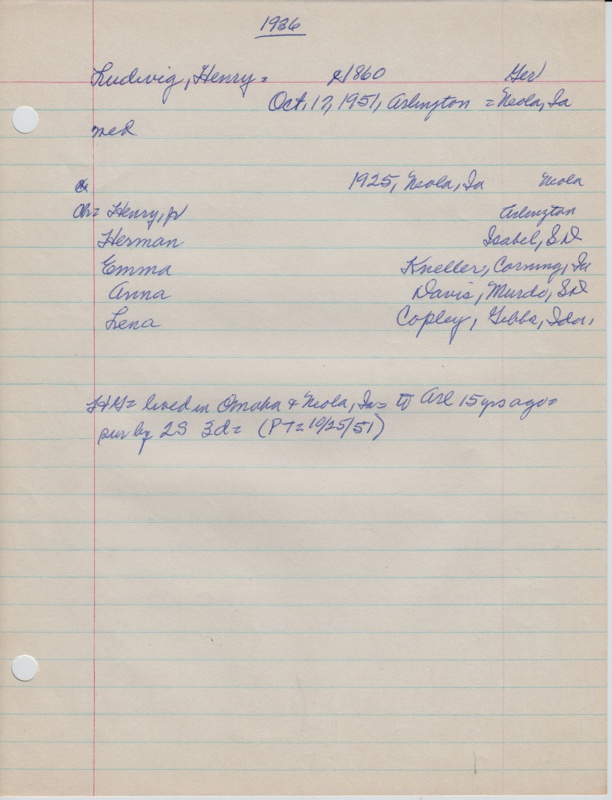 1936
Ludwig, Henry = c1860 Ger
Oct, 17, 1951, Arlington = Neola, Ia
med
1925, Neola, Ia Neola
Ch = Henry, jr Arlington
Herman Isabel, S D
Emma Kneller, Corning, Ia
Anna Davis, Murdo, S D
Lena Copley, Gibbs, Ida.
lived in Omaha & Neola, Ia = to Arl 15 yrs ago =
sur by 2S 3d = (PT = 10/25/51)